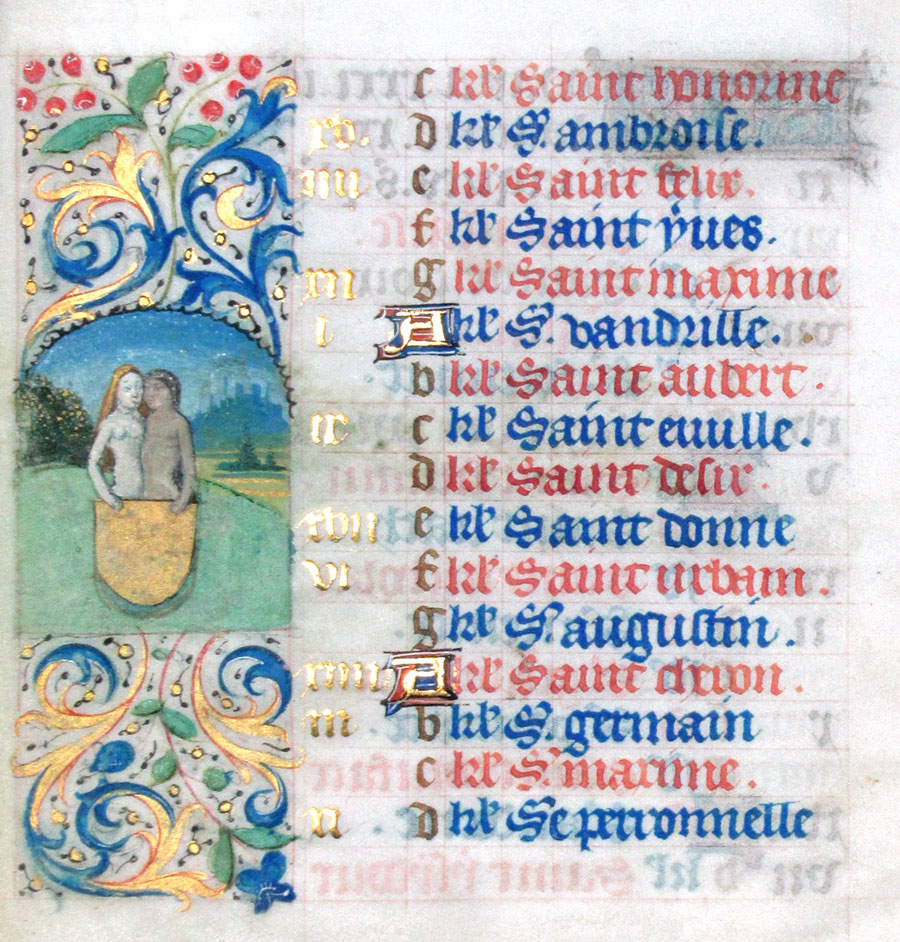 c kł Saint honorine
xv. D kł S. ambroise.
iiii e kł Saint felix.
f kł Saint yues.
xii g kł Saint maxime
i A kł S. vandrille.
b kł Saint aubert.
ix c kł Saint euuille.
D kł Saint desir.
xvii e kł Saint donne
vi f kł Saint urbain.
g kł S. augustin.
xiiii A kł Saint cheron.
iii b kł S. germain
c kł S. maxime.
xi D kł Se perronnelle